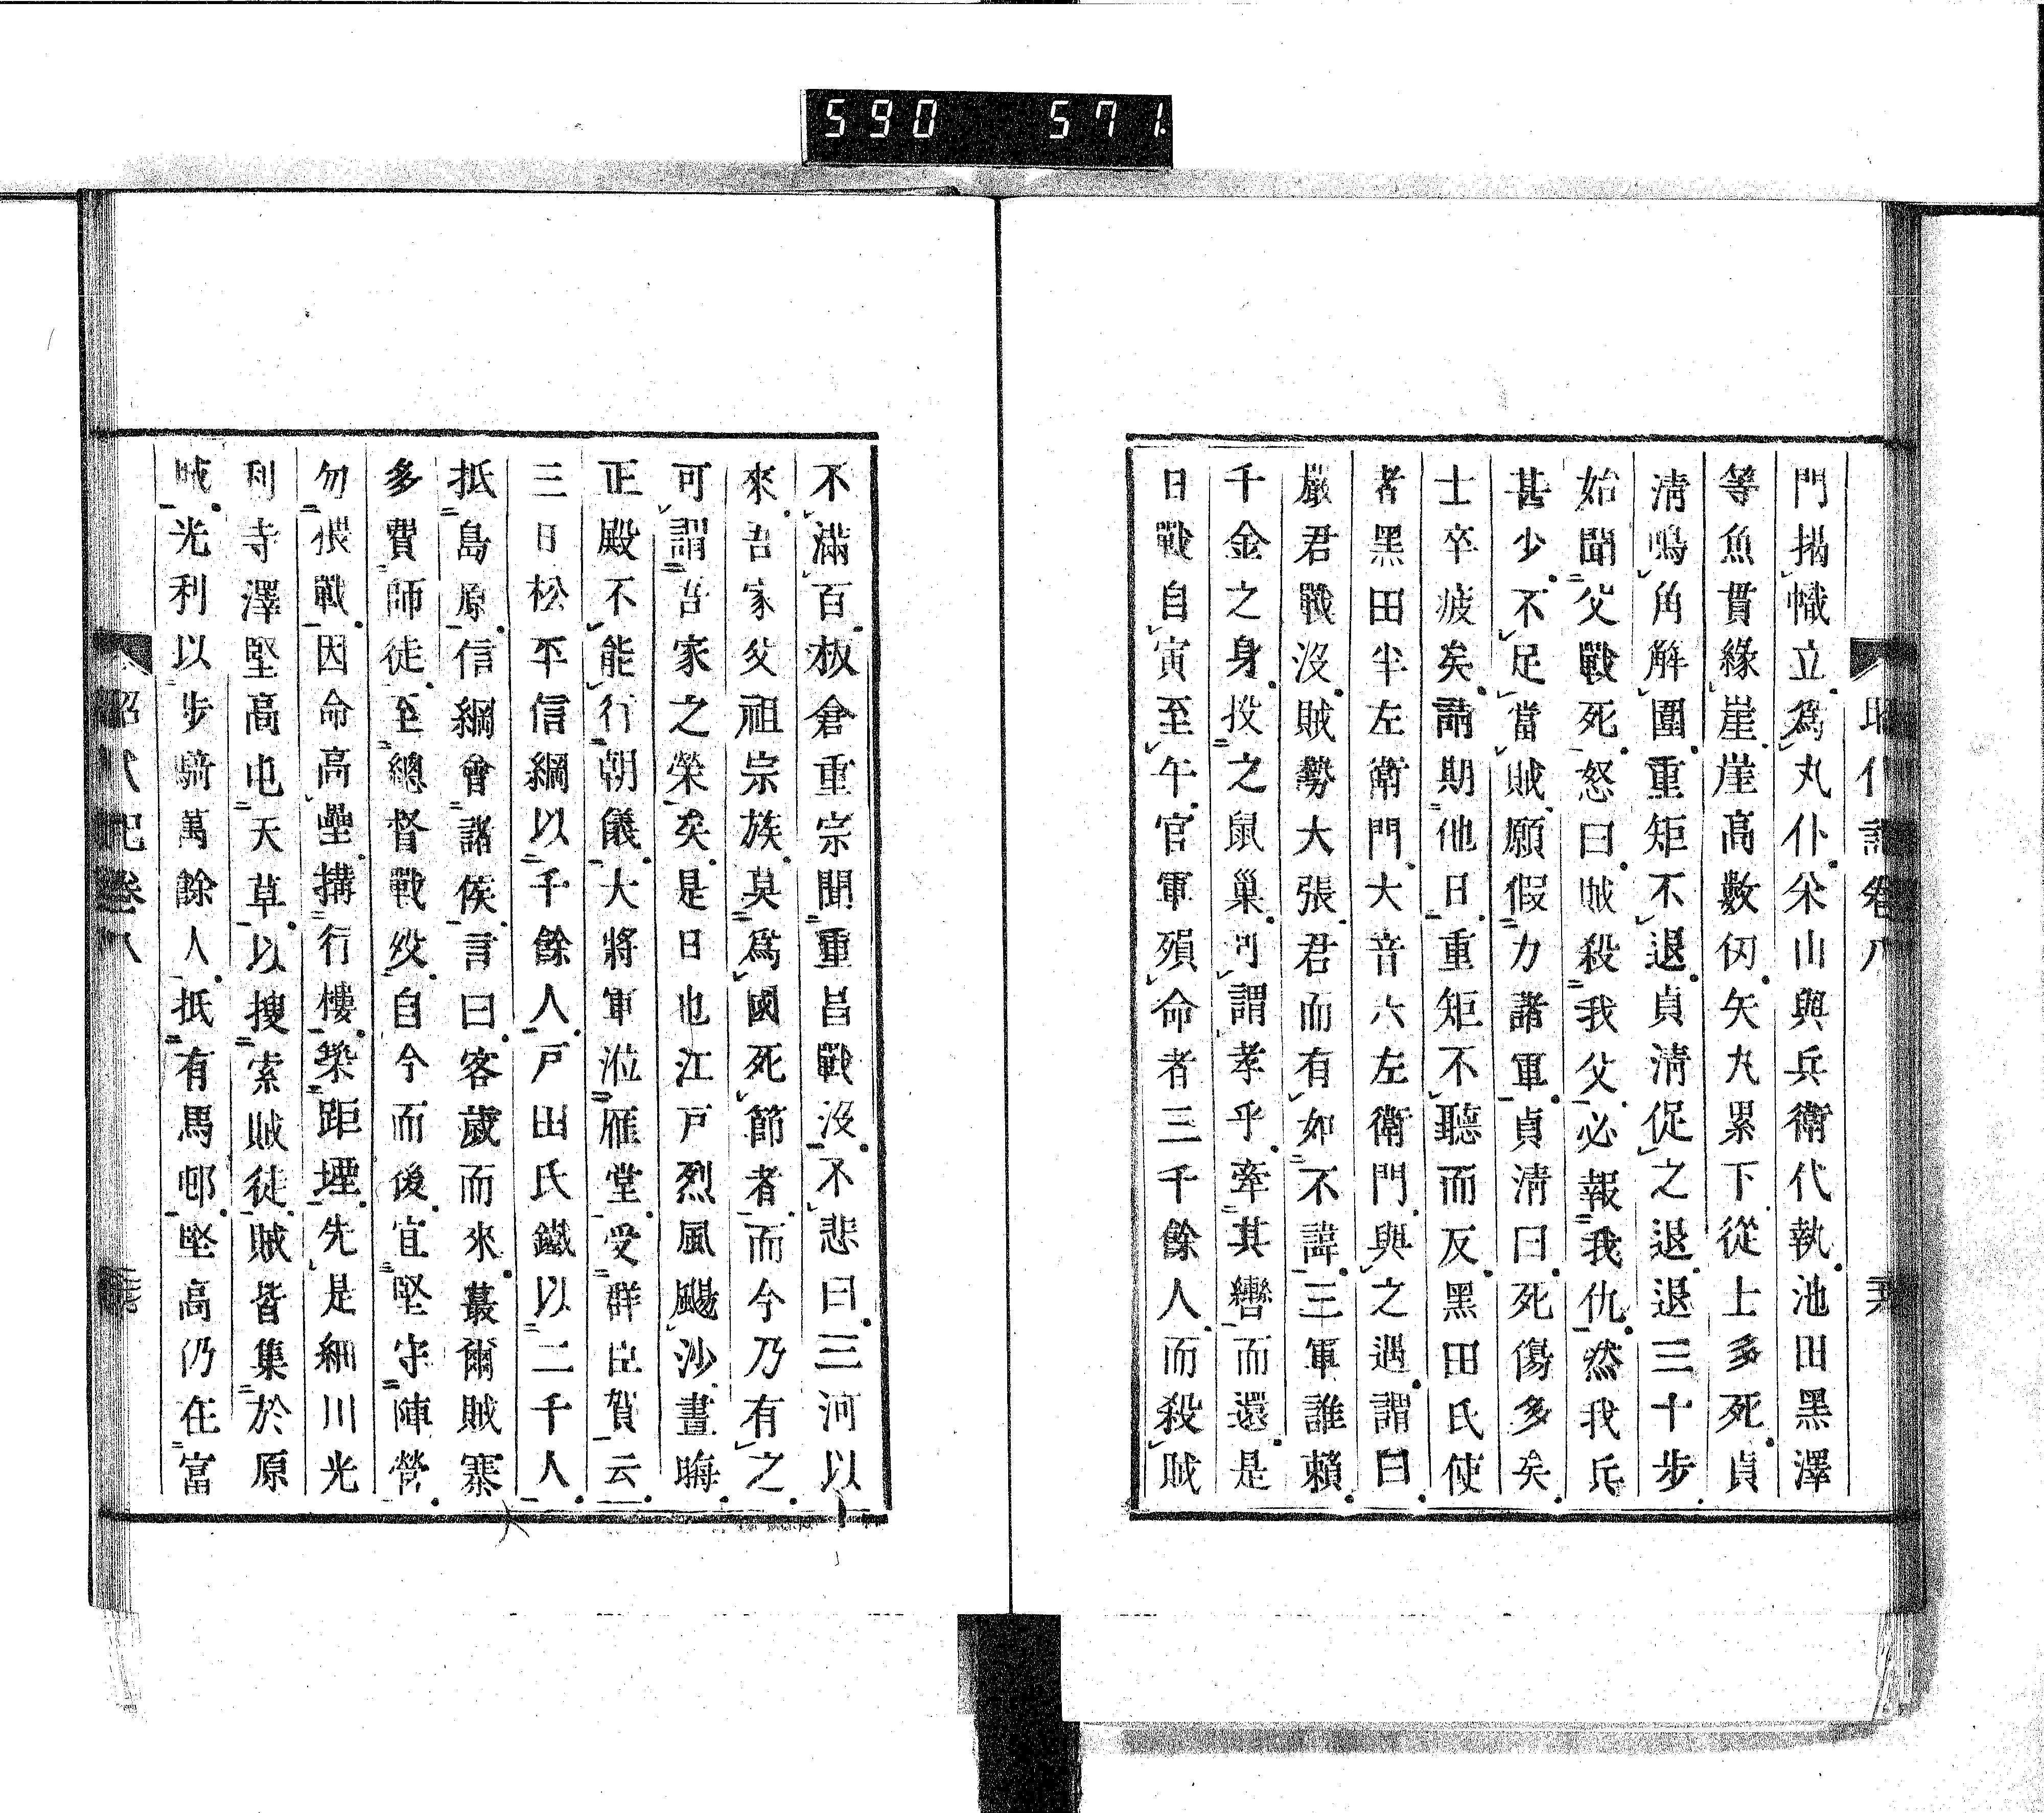 590 571
門揭幟立爲丸仆米山與兵衛代執池田黑澤
等魚貫緣崖崖高數仭矢丸累下從上多死貞
淸鳴角解圍重矩不退貞淸促之退退三十步
始聞父戰死怒曰賊殺我父必報我仇然我兵
甚少不足當賊願假力諸軍貞淸曰死傷多矣
士卒疲矣請期他日重矩不聽而反黑田氏使
者黑田半左衛門大音六左衛門與之遇謂曰
嚴君戰沒賊勢大張君而有如不諱三軍誰賴
千金之身投之鼠巢可謂孝乎牽其轡而還是
日戰自寅至午官軍殞命者三千餘人而殺賊
不滿百板倉重宗聞重昌戰沒不悲曰三河以
來吾家父祖宗族莫爲國死節者而今乃有之
可謂吾家之榮矣是日也江戶烈風颺沙晝晦
正殿不能行朝儀大將軍涖雁堂受群臣賀云
三日松平信綱以千餘人戶田氏鐵以二千人
抵島原信綱會諸侯言曰客歲而來蕞爾賊寨
多費師徒至總督戰歿自今而後宜堅守陣營
勿浪戰因命高壘搆行樓築距堙先是細川光
利寺澤堅高屯天草以搜索賊徒賊皆集於原
城光利以步騎萬餘人抵有馬邨堅高仍在富
昭代記卷八